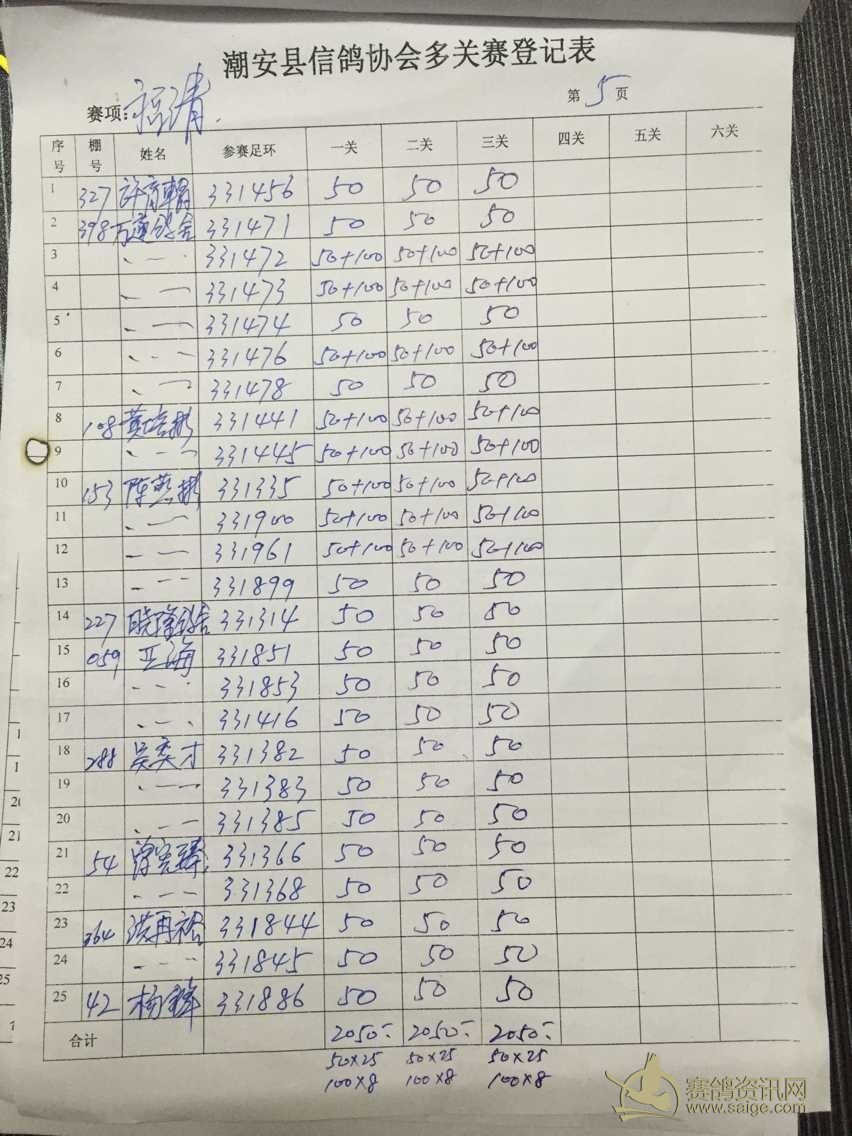 潮安县信鸽协会多关赛登记表
赛项: 福清. 第 5 页
序号 棚号 姓名 参赛足环 一关 二关 三关 四关 五关 六关
1 327 331456 50 50 50
2 398 331471 50 50 50
3 331472 50+100 50+100 50+100
4 331473 50+100 50+100 50+100
5 331474 50 50 50
6 331476 50+100 50+100 50+100
7 331478 50 50 50
8 108 331441 50+100 50+100 50+100
9 331445 50+100 50+100 50+100
10 153 331335 50+100 50+100 50+100
11 331900 50+100 50+100 50+100
12 331961 50+100 50+100 50+100
13 331899 50 50 50
14 227 331314 50 50 50
15 059 331851 50 50 50
16 331853 50 50 50
17 331416 50 50 50
18 288 吴奕才 331382 50 50 50
19 331383 50 50 50
20 331385 50 50 50
21 54 331366 50 50 50
22 331368 50 50 50
23 364 洪再裕 331844 50 50 50
24 331845 50 50 50
25 42 331886 50 50 50
合计 2050- 2050- 2050-
50×25 50×25 50×25
100×8 100×8 100×8
赛鸽资讯网
www.saige.com